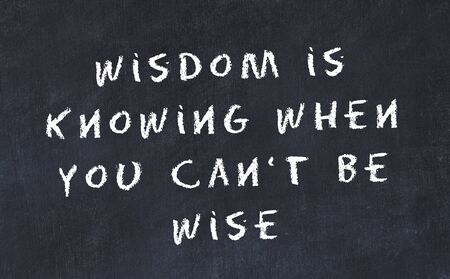 WISDOM IS
KNOWING WHEN
YOU CAN'T BE
WISE